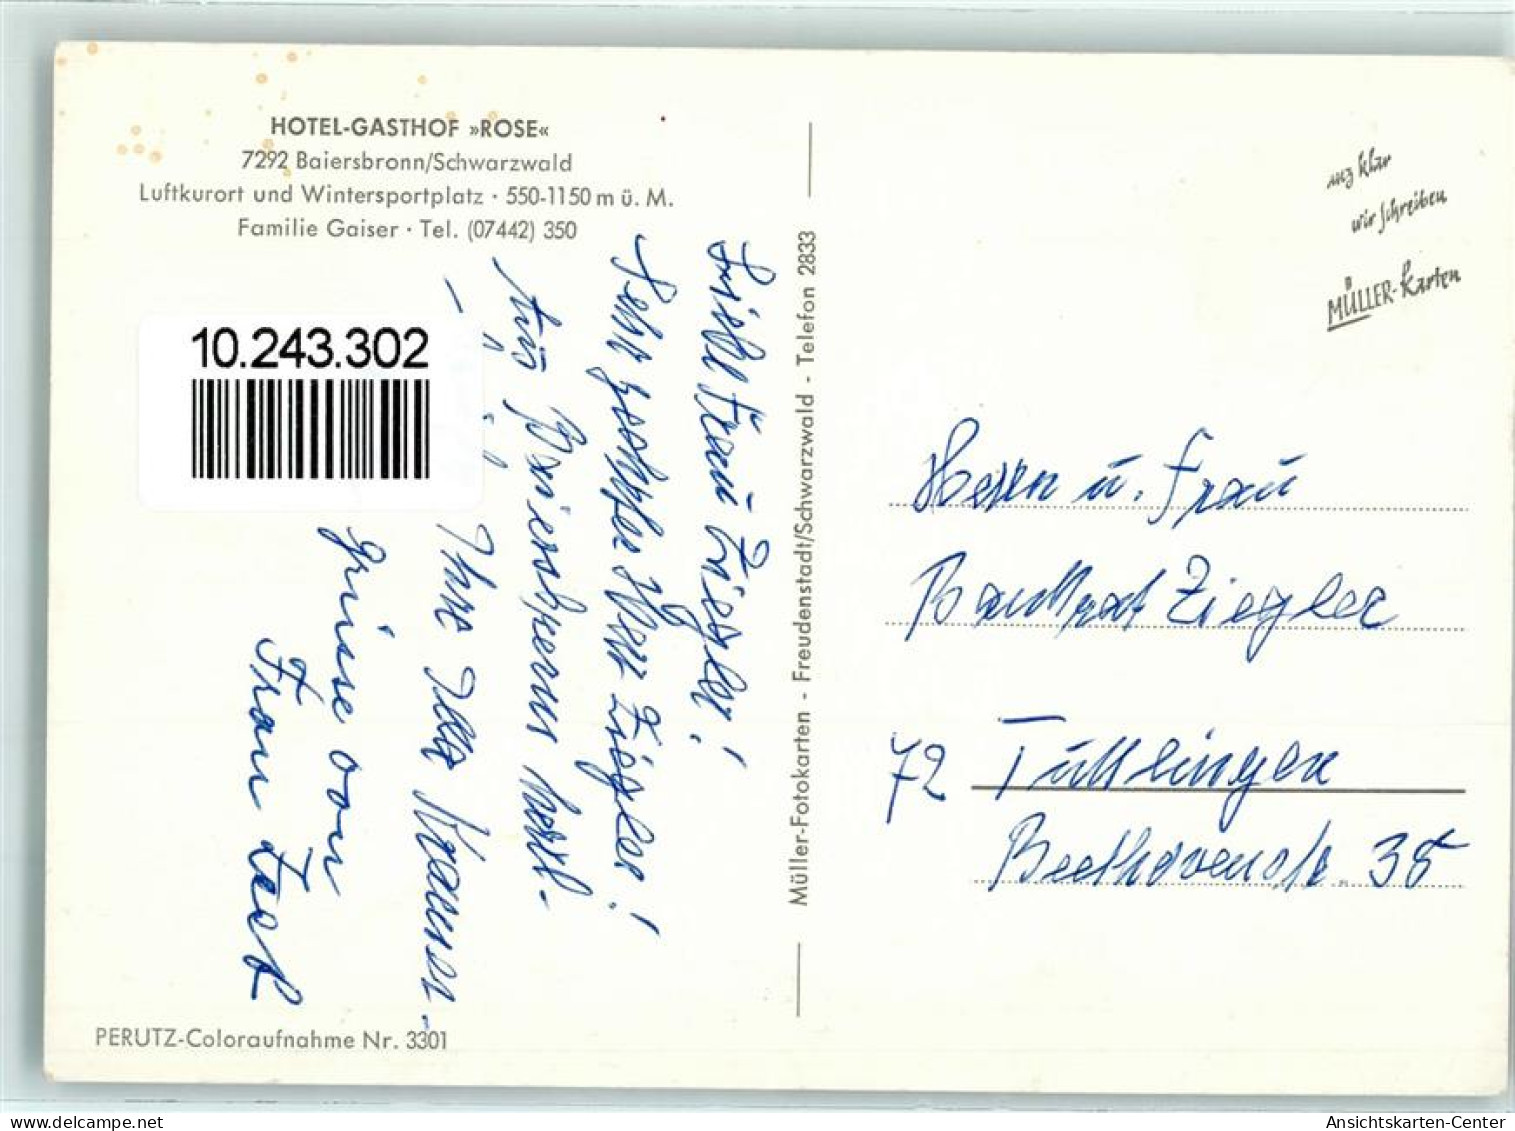 HOTEL-GASTHOF »ROSE«
7292 Baiersbronn/Schwarzwald
Luftkurort und Wintersportplatz · 550-1150 m ü. M.
Familie Gaiser · Tel. (07442) 350
10.243.302
Frau Ziegler!
Sehr geehrter Herr Ziegler!
Aus
Ihre
Grüsse von
Frau
PERUTZ-Coloraufnahme Nr. 3301
Müller-Fotokarten - Freudenstadt/Schwarzwald - Telefon 2833
klar
wir schreiben
MÜLLER-Karten
Herrn u. Frau
Ziegler
72 Tuttlingen
Beethovenstr. 38
oldthing.de
Ansichtskarten-Center